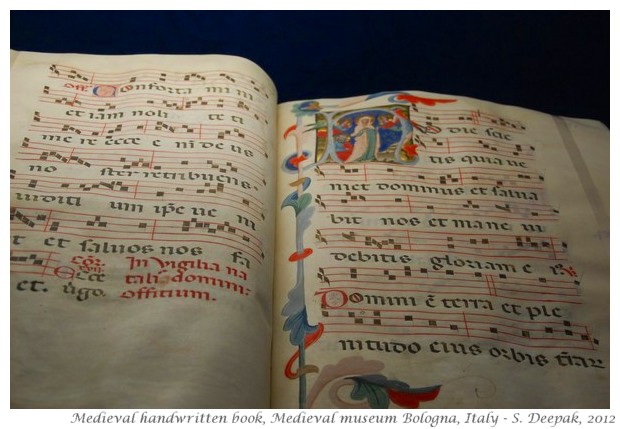 off. Conforta mi ni
et iam noli te ti
me re ecce e ni de us
no ster retribuens
iuditi um ip̃e ue ni
t et saluos nos fa
cōr. In vigilia na
Ecce talis domini
et. ṽgo. officium.
Hodie scie
tis quia ue
niet dominus et salua
bit nos et mane ui
debitis gloriam e
Domini ē terra et ple
nitudo eius orbis
Medieval handwritten book, Medieval museum Bologna, Italy - S. Deepak, 2012